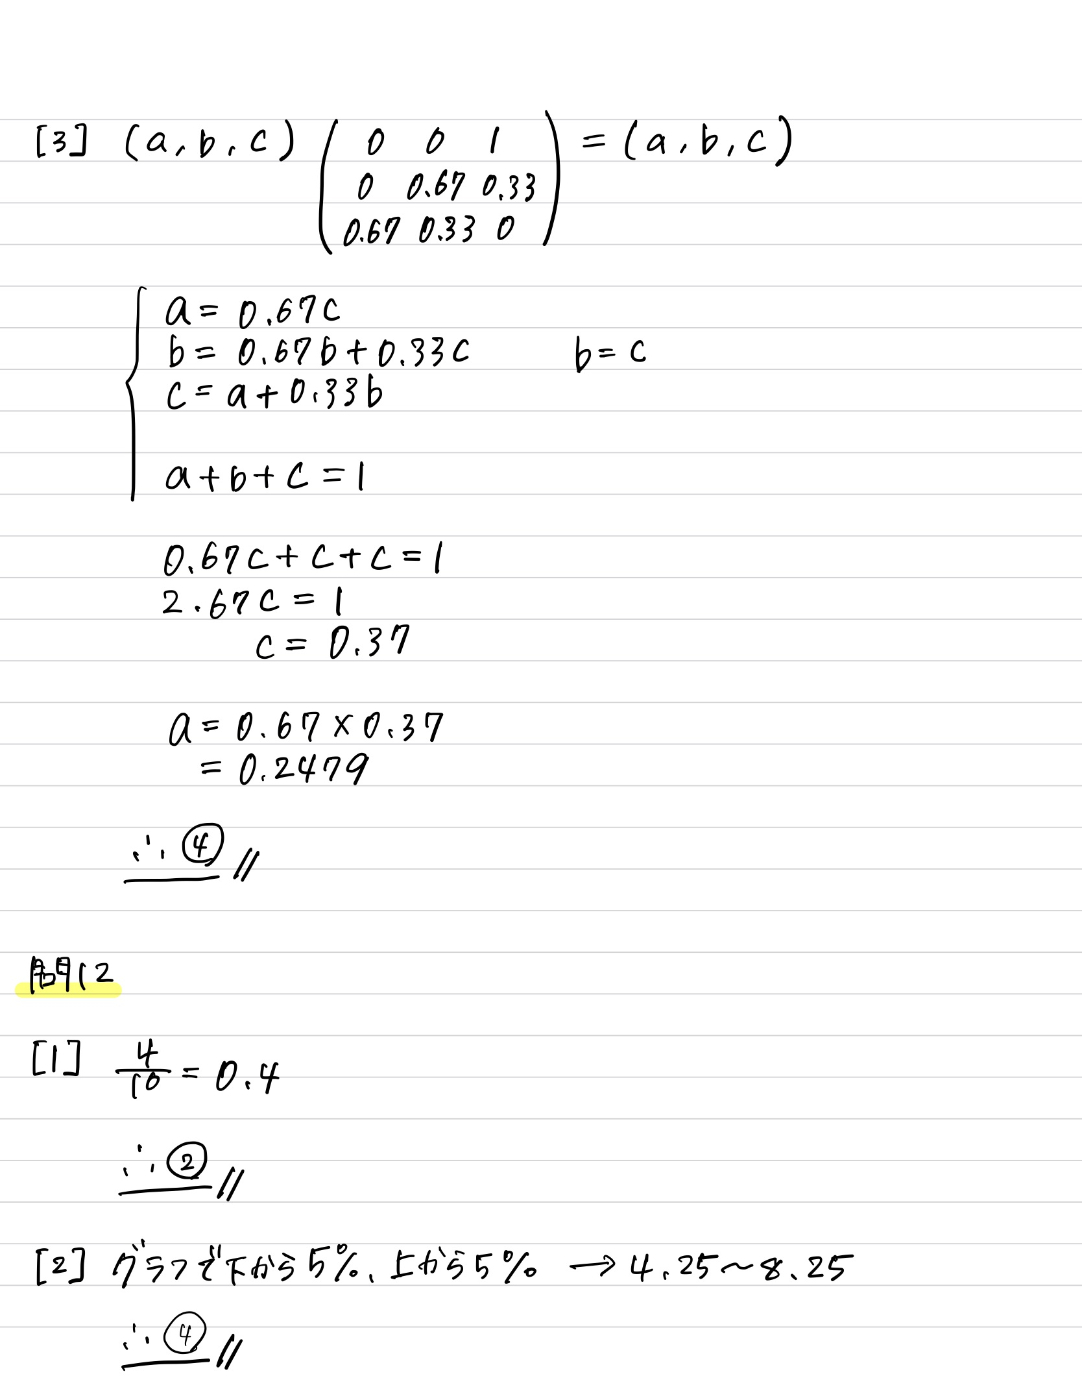 [3] (a, b, c) ( 0 0 1 ) = (a, b, c)
0 0.67 0.33
0.67 0.33 0
a = 0.67c
b = 0.67b + 0.33c b = c
c = a + 0.33b
a + b + c = 1
0.67c + c + c = 1
2.67c = 1
c = 0.37
a = 0.67 × 0.37
= 0.2479
∴ ④ //
問12
[1] 4/10 = 0.4
∴ ② //
[2] グラフで下から5%、上から5% → 4.25～8.25
∴ ④ //